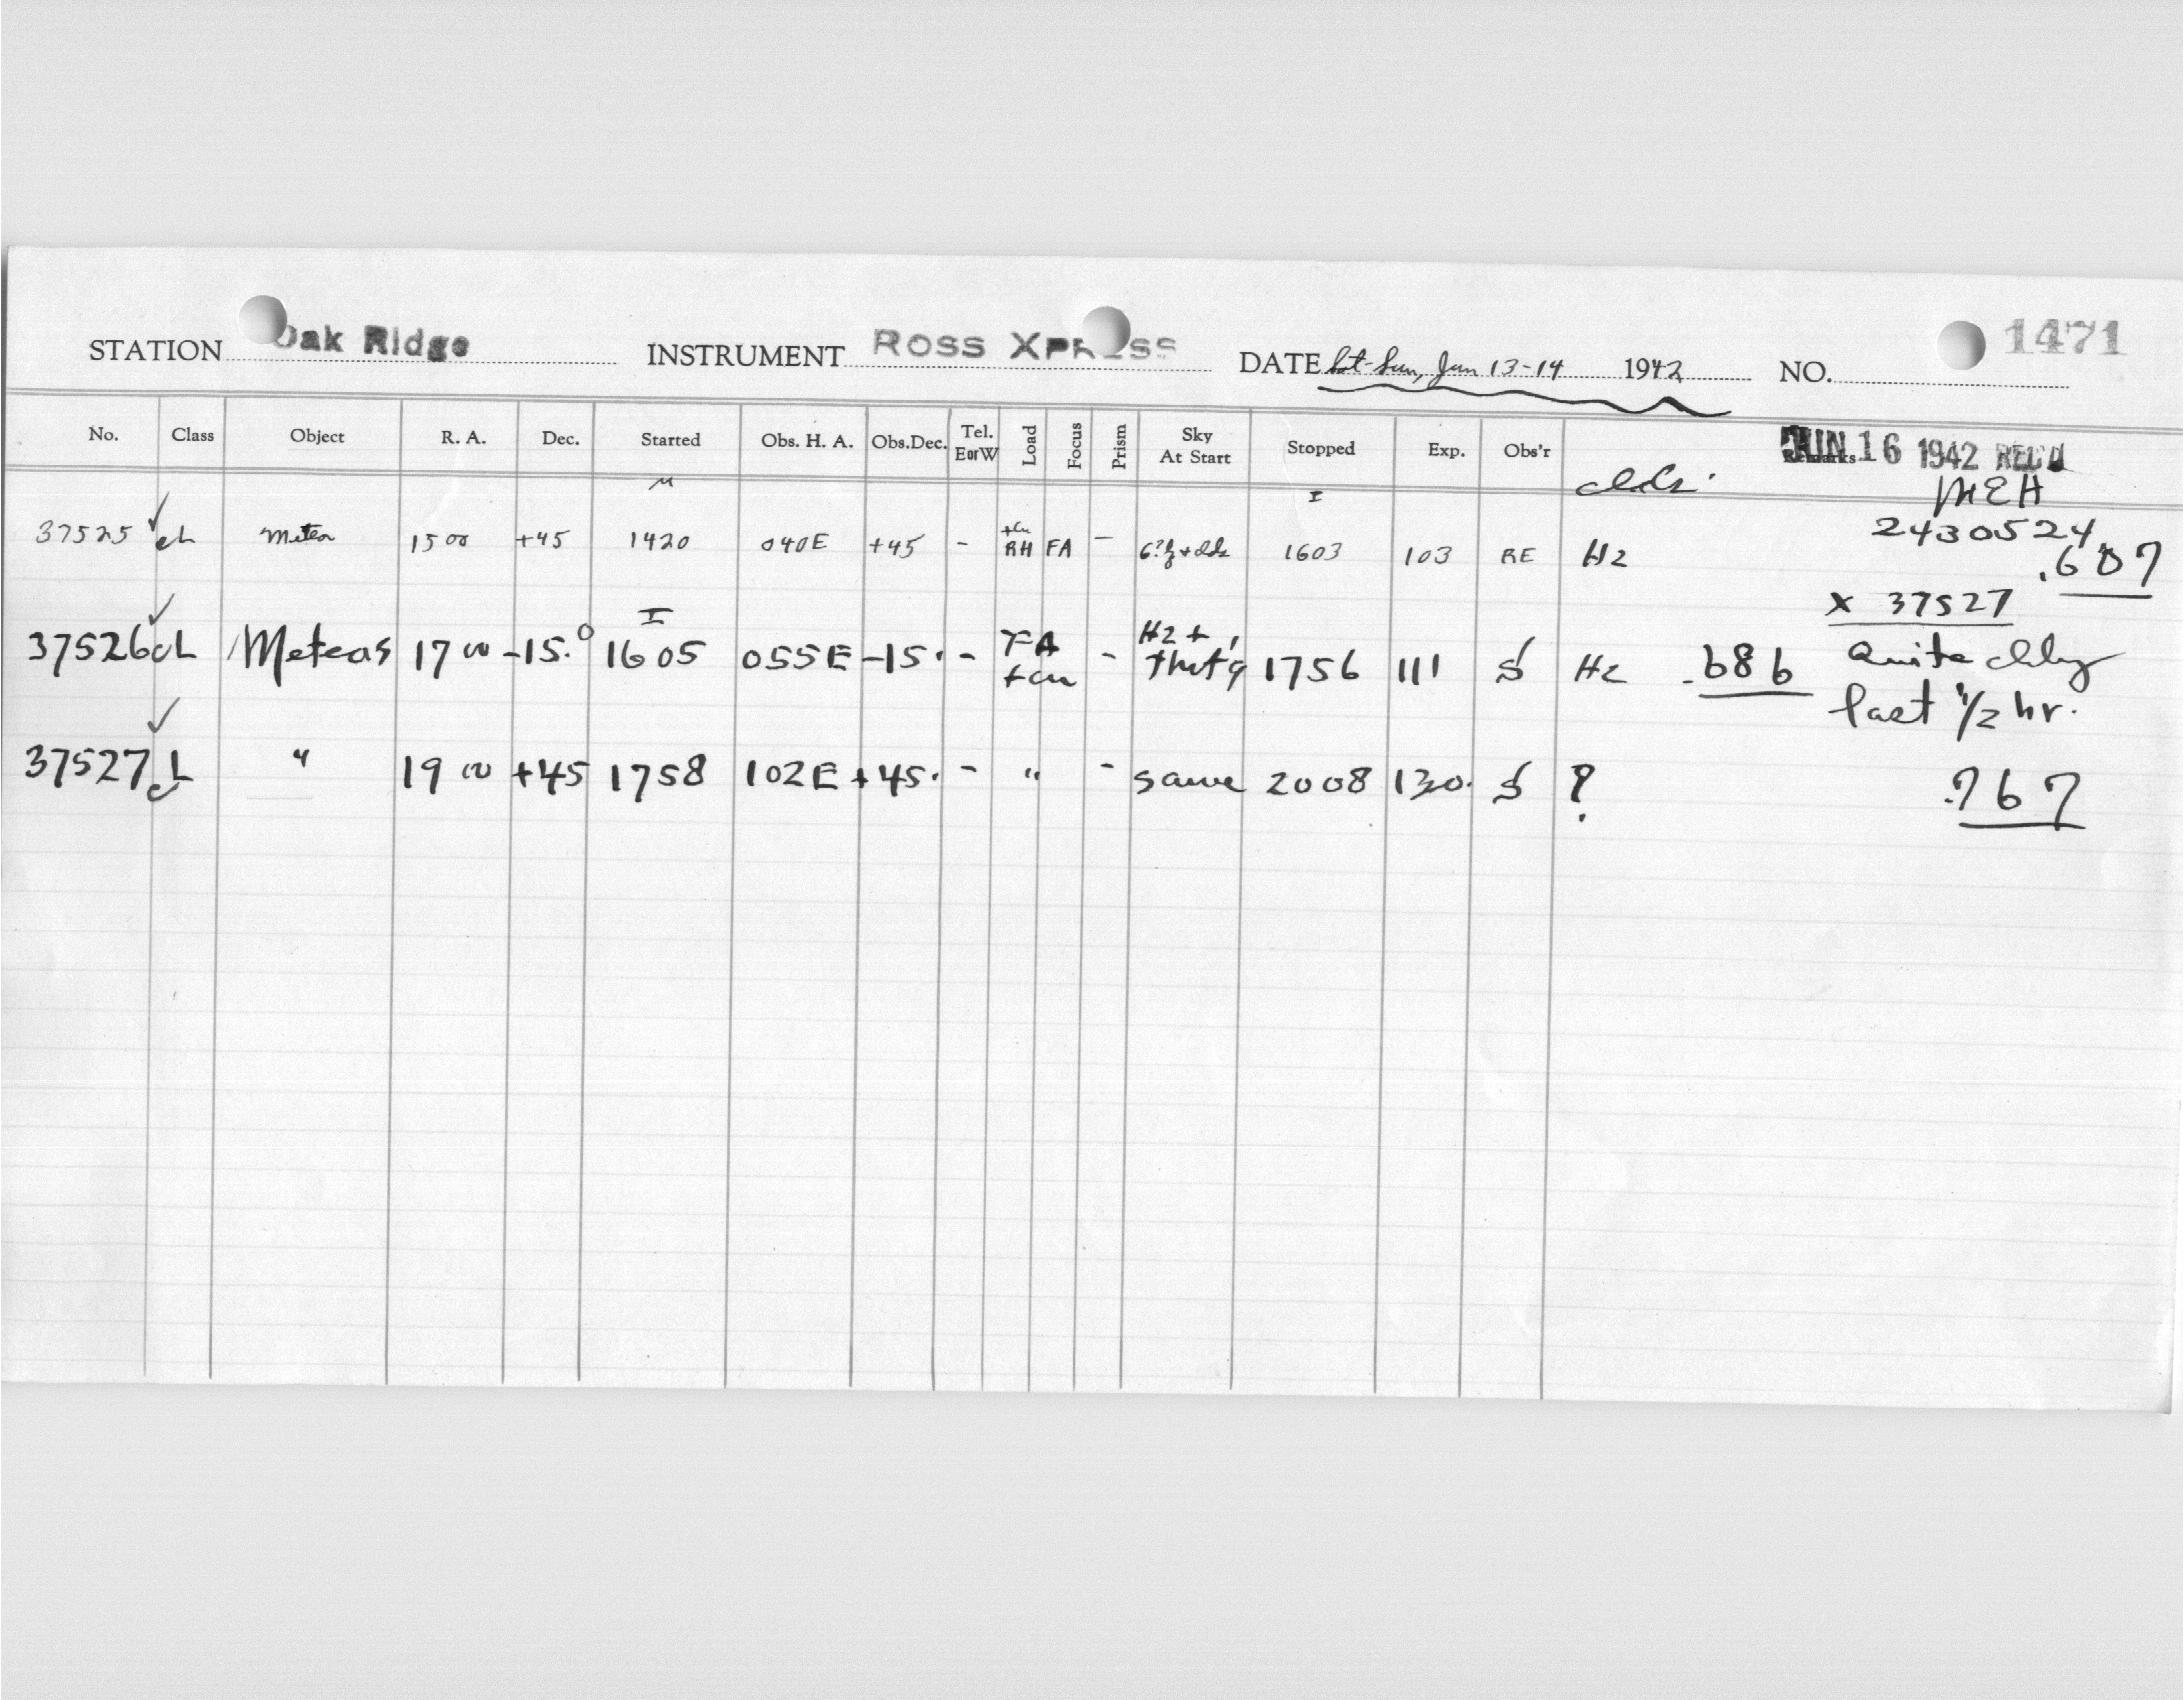 STATION Oak Ridge INSTRUMENT Ross Xpress DATE Sat-Sun, Jun 13-14 1942 NO. 1471
No. Class Object R. A. Dec. Started Obs. H. A. Obs.Dec. Tel. E or W Load Focus Prism Sky At Start Stopped Exp. Obs'r Remarks
JUN 16 1942 REC'D
clds. MEH
M I
37525 ✓ ch Meteor 15 00 +45 1420 040E +45 - RH FA - 1603 103 RE Hz 2430524
.607
x 37527
I
37526 ✓ cL Meteors 17 00 -15.° 1605 055E -15. - FA - Hz + 1756 111 S Hz .686 Quite cldy
last 1/2 hr.
37527 ✓ cL " 19 00 +45 1758 102E +45. - " - same 2008 130. S ? .767